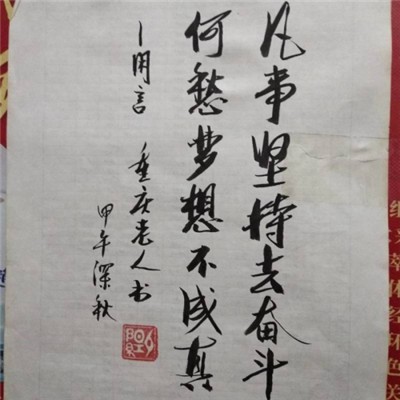 凡事坚持去奋斗
何愁梦想不成真
丨用言 重庆老人书
甲午深秋